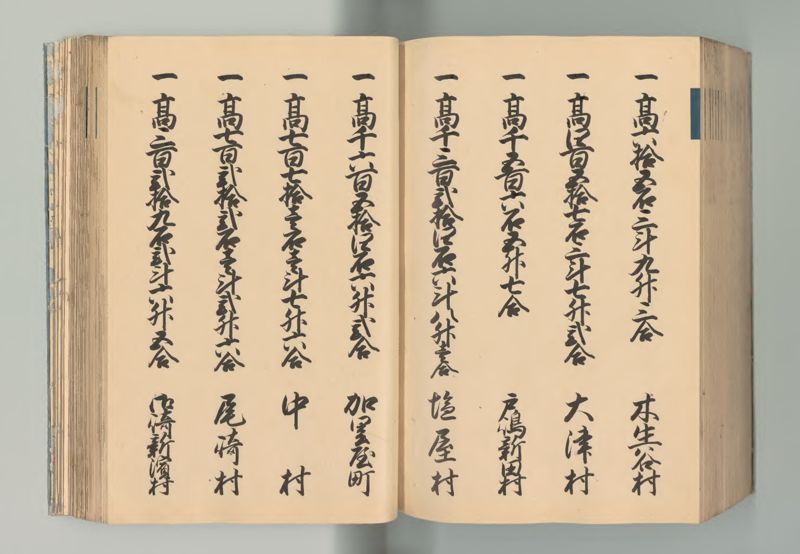 一 高六拾五石三斗九升三合 木生谷村
一 高四百五拾七石三斗七升弐合 大津村
一 高千五百六石五升七合 戸嶋新田村
一 高千三百弐拾四石六斗八升壱合 塩屋村
一 高千六百五拾四石六升弐合 加里屋町
一 高七百七拾壱石壱斗七升六合 中村
一 高七百弐拾弐石壱斗弐升六合 尾崎村
一 高三百弐拾九石弐斗六升五合 御崎新濱村